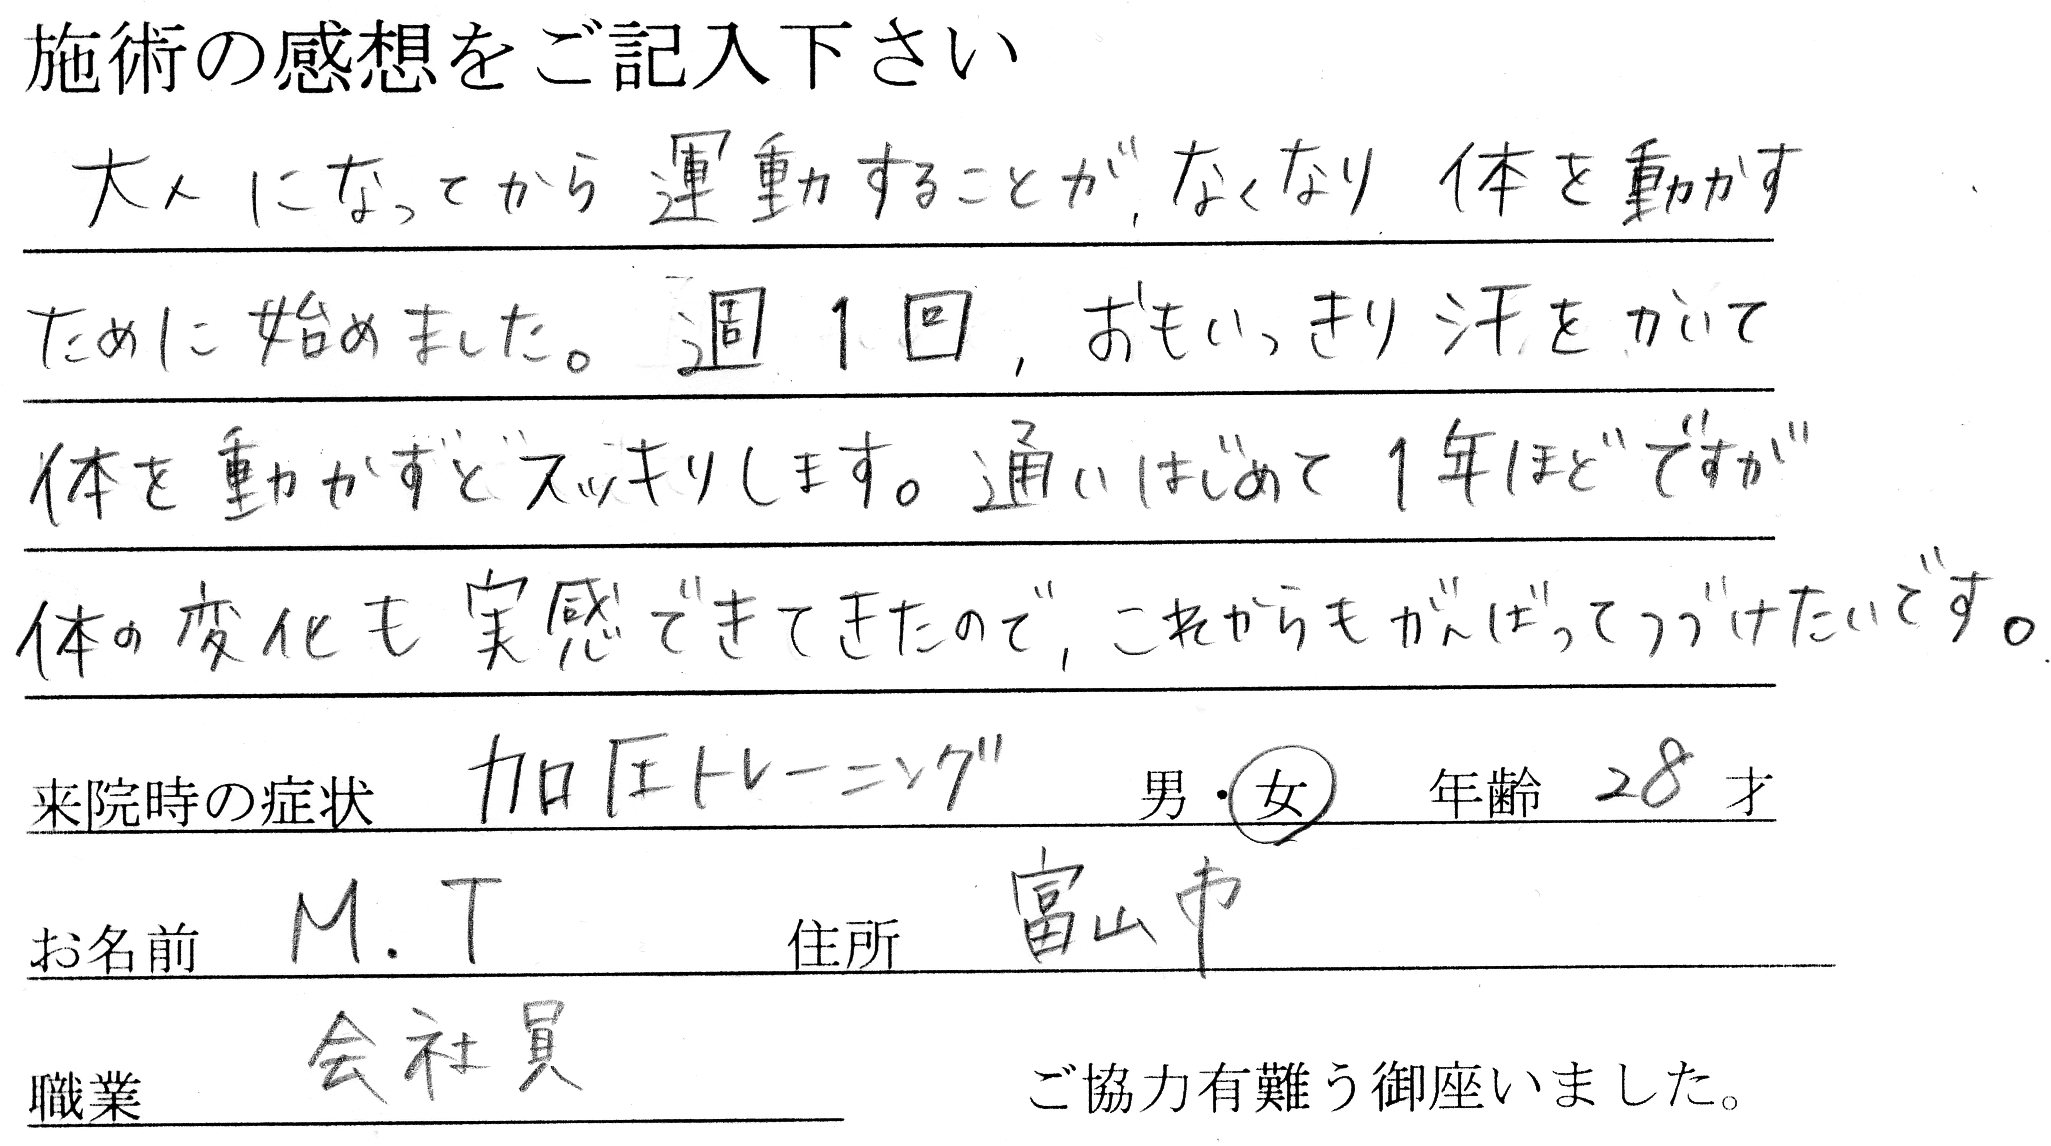 施術の感想をご記入下さい
大人になってから運動することが、なくなり 体を動かす
ために始めました。週1回、おもいっきり汗をかいて
体を動かすとスッキリします。通いはじめて1年ほどですが
体の変化も実感できてきたので、これからもがんばってつづけたいです。
来院時の症状 加圧トレーニング 男・女 年齢 28才
お名前 M.T 住所 富山市
職業 会社員 ご協力有難う御座いました。